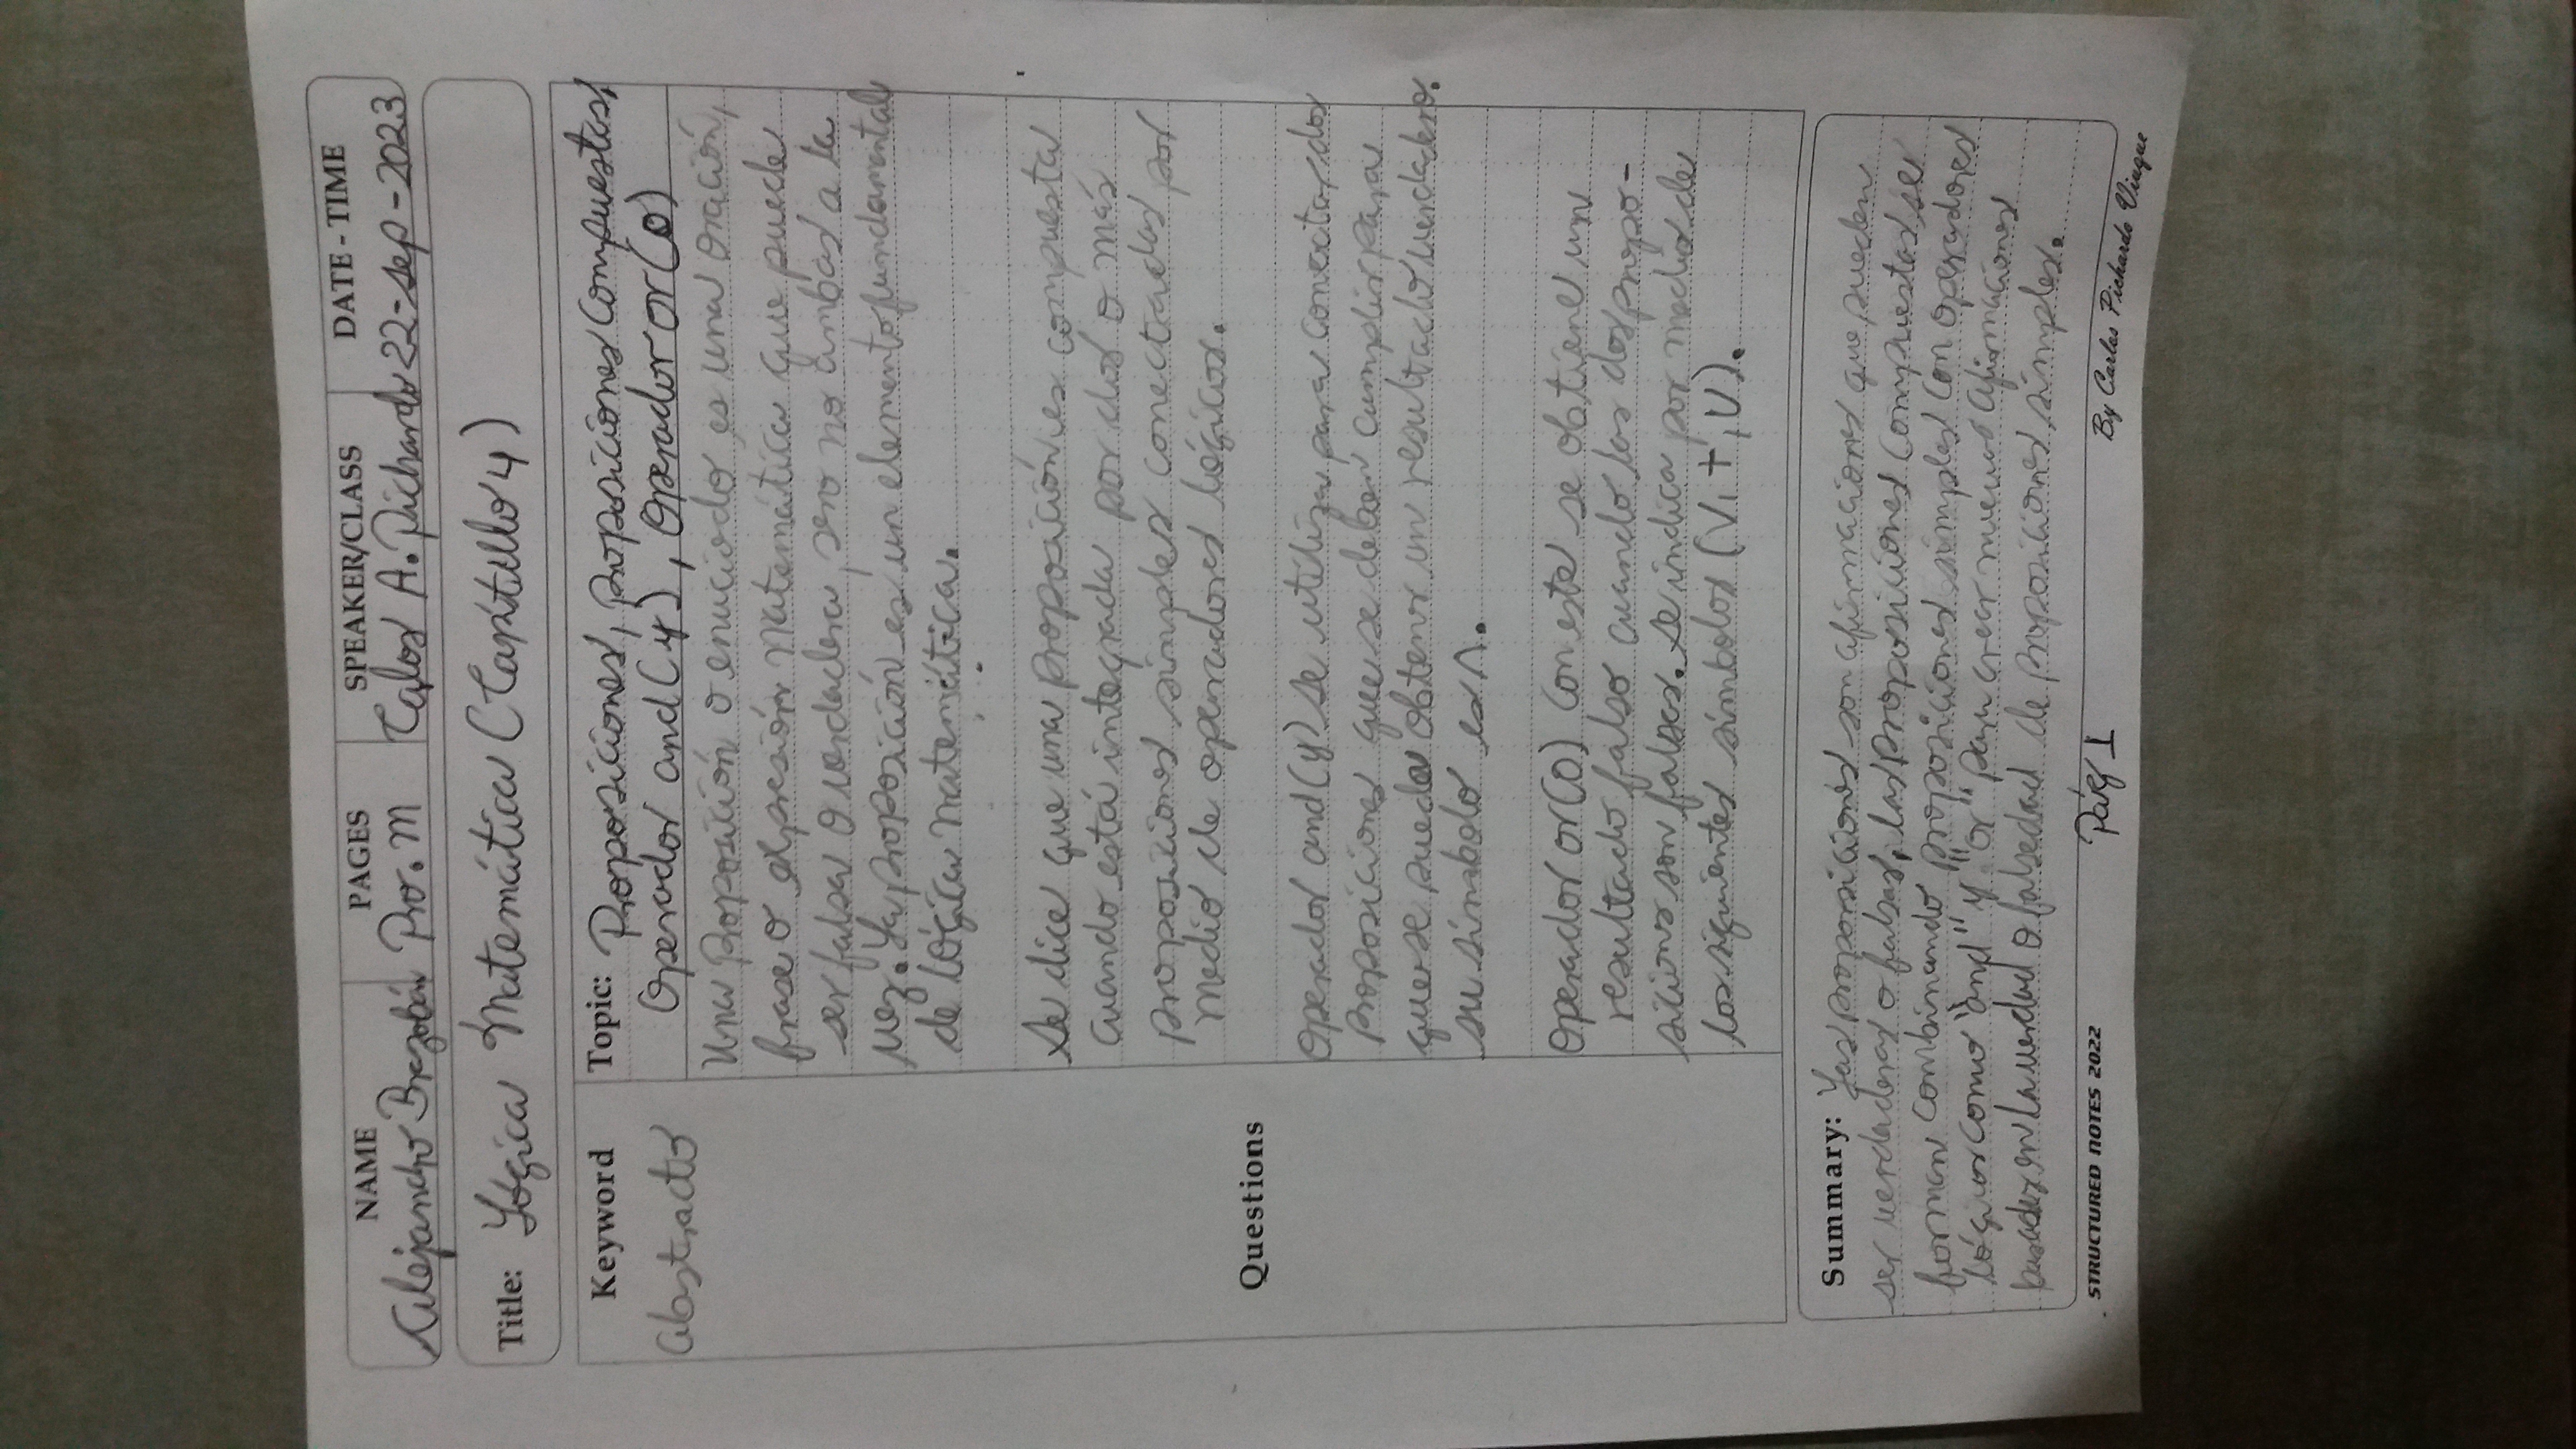 NAME PAGES SPEAKER/CLASS DATE - TIME
Alejandro Brazobán Pro. M Calos A. Pichardo 22-sep-2023
Title: Lógica Matemática (Capítullo 4)
Keyword
Abstracto
Topic: Proposiciones, proposiciones Compuestas,
Operador and (y), Operador or (o)
Una Proposición o enuciado es una oración,
frase o expresión Matemática que puede
ser falsa o verdadera, pero no ambas a la
vez. La proposición es un elemento fundamental
de lógica matemática.
Se dice que una proposición es compuesta
cuando está integrada por dos o más
proposiciones simples conectradas por
medio de operadores lógicos.
Questions
Operador and (y) se utiliza para conectar dos
proposiciones que se deben cumplir para
que se pueda obtener un resultado verdadero.
su símbolo es ∧.
Operador or (o) Con este se obtiene un
resultado falso cuando las dos propo-
siciones son falsas. Se indica por medio de
los siguientes símbolos (V, +, U).
Summary: Las proporsiciones son afirmaciones que pueden
ser verdaderas o falsas, las proposiciones compuestas se
forman combinando proposiciones simples con operadores
lógicos como "and" y "or" para crear nuevas afirmaciones
basadas en la verdad o falsedad de proposiciones simples.
STRUCTURED NOTES 2022 Pág 1 By Carlos Pichardo Viuque